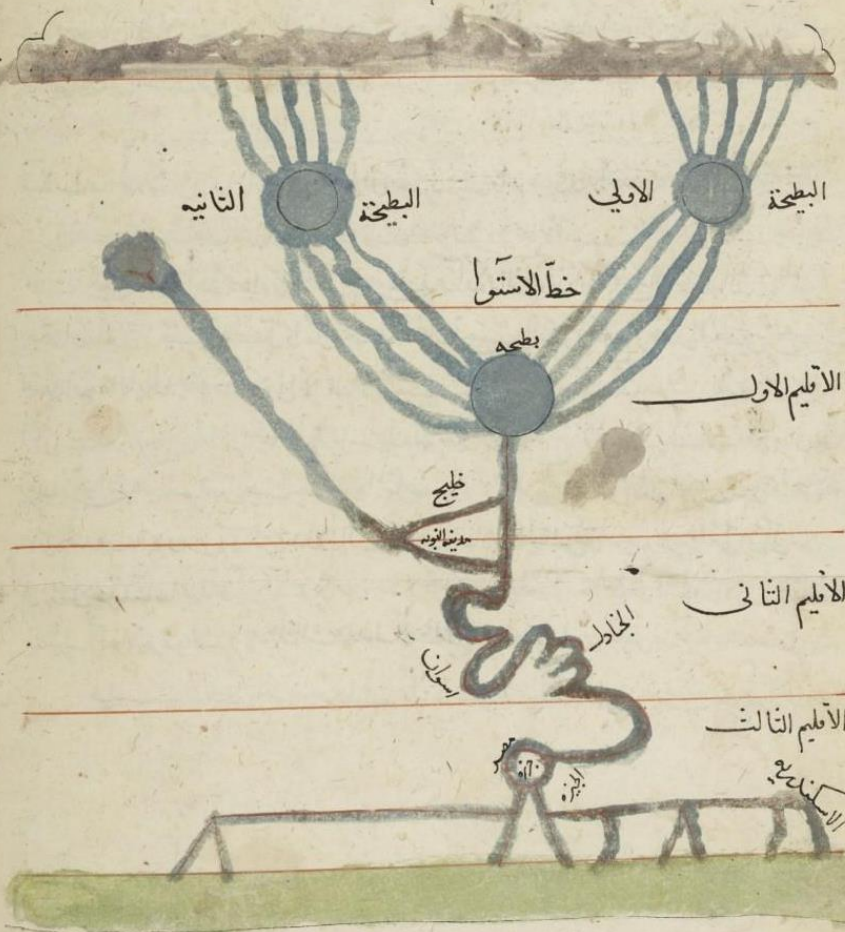 البطيحة
الاولي
البطيحة
الثانيه
خطّ الاستوآ
بطيحه
الاقليم الاول
خليج
مدينة النوبه
الاقليم الثانى
الجنادل
اسوان
الاقليم الثالث
مصر
الجيزه
الاسكندريه